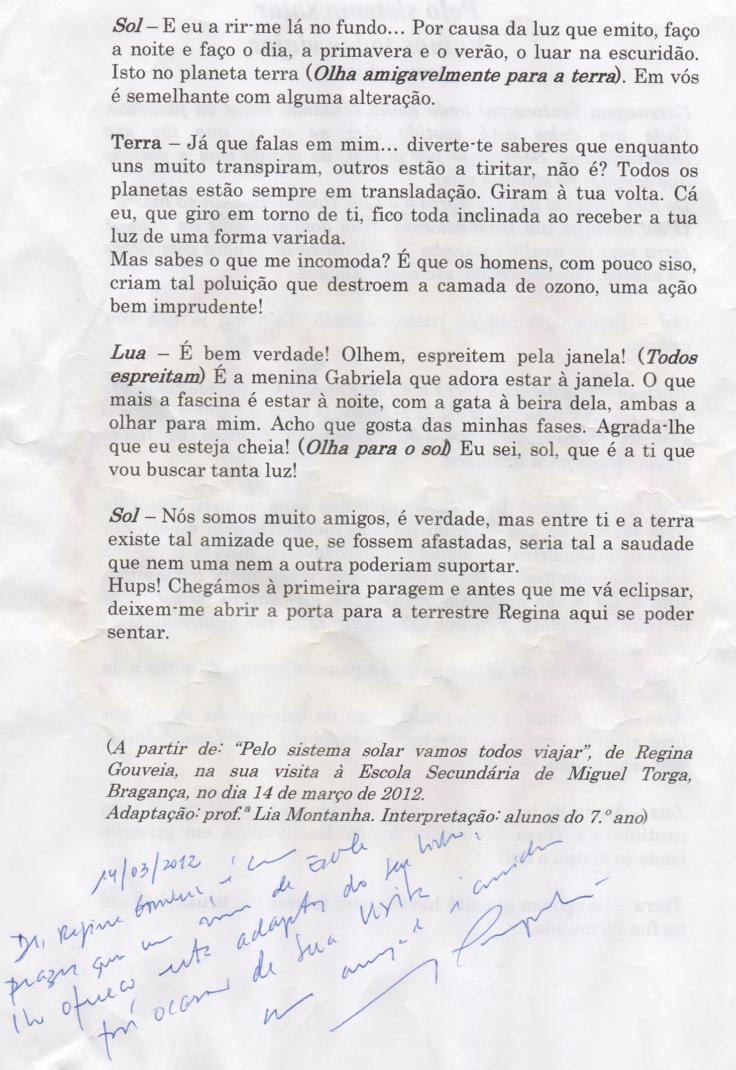 Sol – E eu a rir-me lá no fundo... Por causa da luz que emito, faço
a noite e faço o dia, a primavera e o verão, o luar na escuridão.
Isto no planeta terra (Olha amigavelmente para a terra). Em vós
é semelhante com alguma alteração.
Terra – Já que falas em mim... diverte-te saberes que enquanto
uns muito transpiram, outros estão a tiritar, não é? Todos os
planetas estão sempre em transladação. Giram à tua volta. Cá
eu, que giro em torno de ti, fico toda inclinada ao receber a tua
luz de uma forma variada.
Mas sabes o que me incomoda? É que os homens, com pouco siso,
criam tal poluição que destroem a camada de ozono, uma ação
bem imprudente!
Lua – É bem verdade! Olhem, espreitem pela janela! (Todos
espreitam) É a menina Gabriela que adora estar à janela. O que
mais a fascina é estar à noite, com a gata à beira dela, ambas a
olhar para mim. Acho que gosta das minhas fases. Agrada-lhe
que eu esteja cheia! (Olha para o sol) Eu sei, sol, que é a ti que
vou buscar tanta luz!
Sol – Nós somos muito amigos, é verdade, mas entre ti e a terra
existe tal amizade que, se fossem afastadas, seria tal a saudade
que nem uma nem a outra poderiam suportar.
Hups! Chegámos à primeira paragem e antes que me vá eclipsar,
deixem-me abrir a porta para a terrestre Regina aqui se poder
sentar.
(A partir de: “Pelo sistema solar vamos todos viajar”, de Regina
Gouveia, na sua visita à Escola Secundária de Miguel Torga,
Bragança, no dia 14 de março de 2012.
Adaptação: prof.ª Lia Montanha. Interpretação: alunos do 7.º ano)
14/03/2012
Dr. Regina Gouveia é com
prazer que em nome da Escola
lhe ofereço esta adaptação do seu livro
por ocasião da sua visita